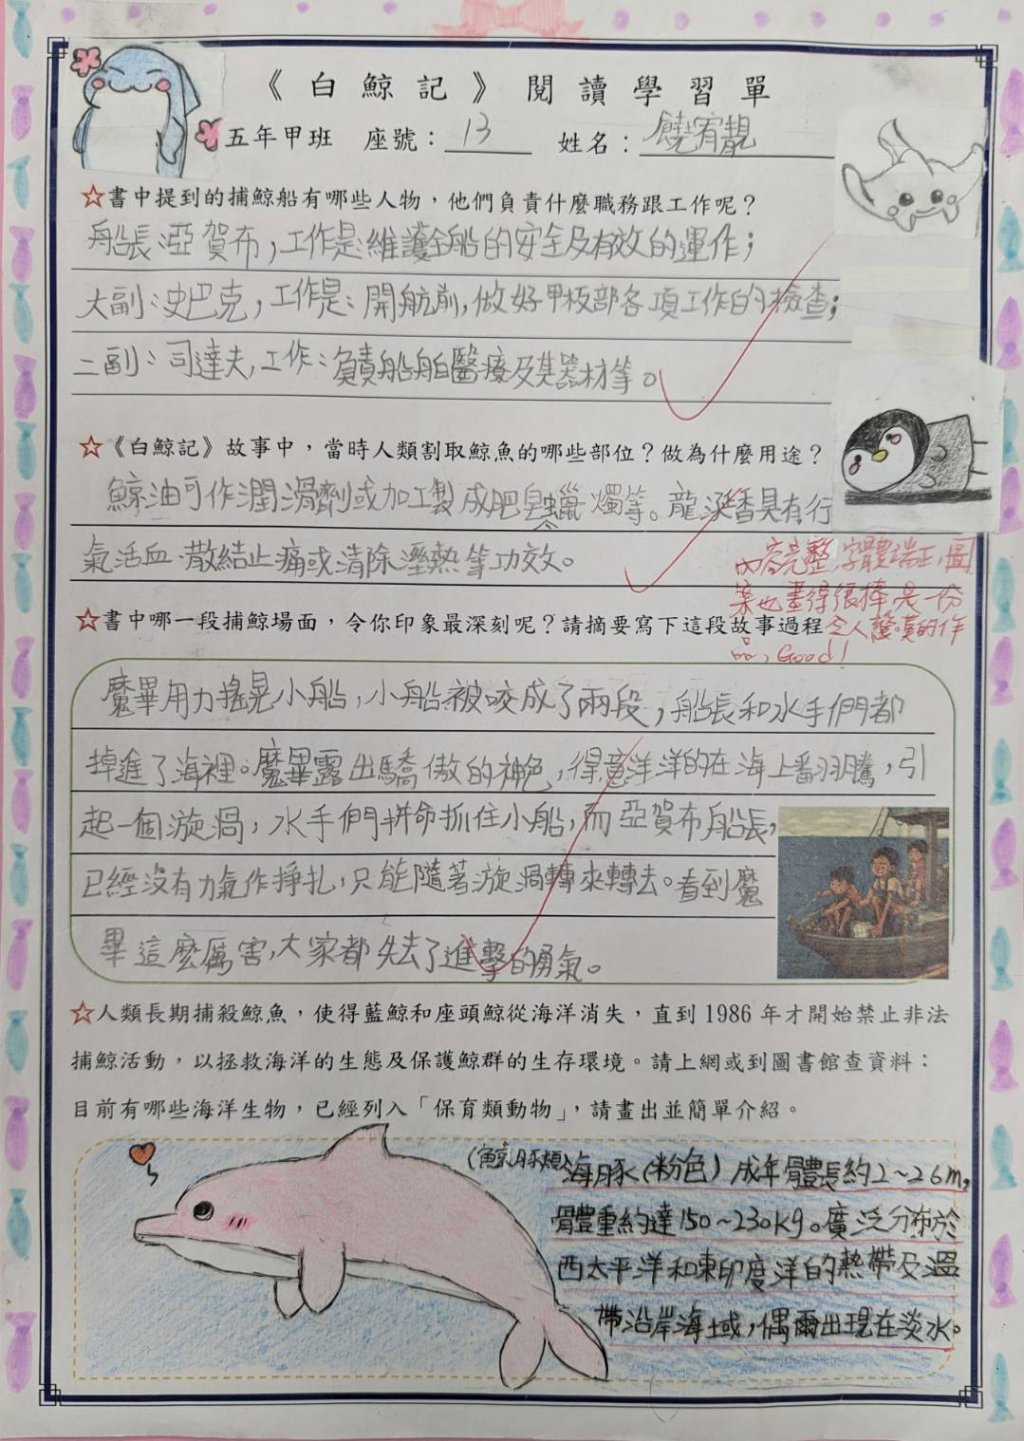 《白鯨記》閱讀學習單
五年甲班 座號：13 姓名：饒宥靚
☆書中提到的捕鯨船有哪些人物，他們負責什麼職務跟工作呢？
船長：亞賀布，工作是維護全船的安全及有效的運作；
大副：史巴克，工作是：開航前，做好甲板部各項工作的檢查；
二副：司達夫，工作：負責船舶醫療及其器材等。
☆《白鯨記》故事中，當時人類割取鯨魚的哪些部位？做為什麼用途？
鯨油可作潤滑劑或加工製成肥皂蠟燭等。龍涎香具有行
氣活血、散結止痛或清除溼熱等功效。
內容完整，字體端正，圖
案也畫得很棒，是一份
令人驚嘆的作
品，Good！
☆書中哪一段捕鯨場面，令你印象最深刻呢？請摘要寫下這段故事過程
魔畢用力搖晃小船，小船被咬成了兩段，船長和水手們都
掉進了海裡。魔畢露出驕傲的神色，得意洋洋的在海上翻騰，引
起一個漩渦，水手們拼命抓住小船，而亞賀布船長，
已經沒有力氣作掙扎，只能隨著漩渦轉來轉去。看到魔
畢這麼厲害，大家都失去了進擊的勇氣。
☆人類長期捕殺鯨魚，使得藍鯨和座頭鯨從海洋消失，直到1986年才開始禁止非法
捕鯨活動，以拯救海洋的生態及保護鯨群的生存環境。請上網或到圖書館查資料：
目前有哪些海洋生物，已經列入「保育類動物」，請畫出並簡單介紹。
(鯨豚類)
海豚(粉色)成年體長約2~2.6m，
體重約達150~230kg。廣泛分布於
西太平洋和東印度洋的熱帶及溫
帶沿岸海域，偶爾出現在淡水。